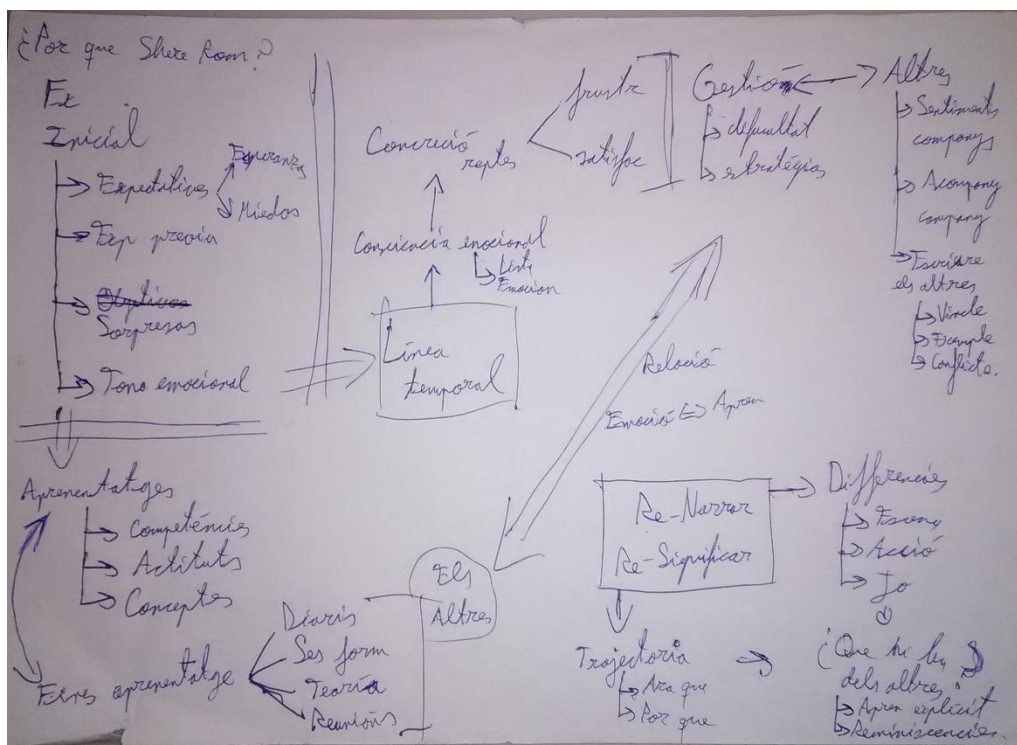 ¿Por que Shere Rom?
Inicial
Expectatives
Esperanzas
Miedos
Exp previa
Objetivos
Sorpresas
Tono emocional
Aprenentatges
Competéncies
Actituts
Conceptes
Eines aprenentatge
Diaris
Ses form
Teoría
Reunións
Els
Altres
Linea
temporal
Consciencia emocional
Lista
Emocion
Concreció
reptes
frustr
satisfac
Gestión
dificultat
estratégias
Altres
Sentiments
companys
Acompany
company
Escriure
els altres
Vincle
Exemple
Conflicte.
Relació
Emoció ⇔ Apren
Re-Narrar
Re-Significar
Differencies
Acció
Jo
Trajectoria
Ara que
Por que
¿Que hi ha
dels altres?
Apren explícit
Reminiscencies.